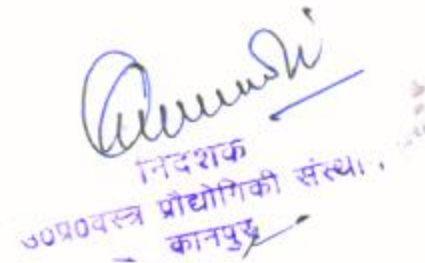 निदेशक
उ०प्र०वस्त्र प्रौद्योगिकी संस्था,
कानपुर